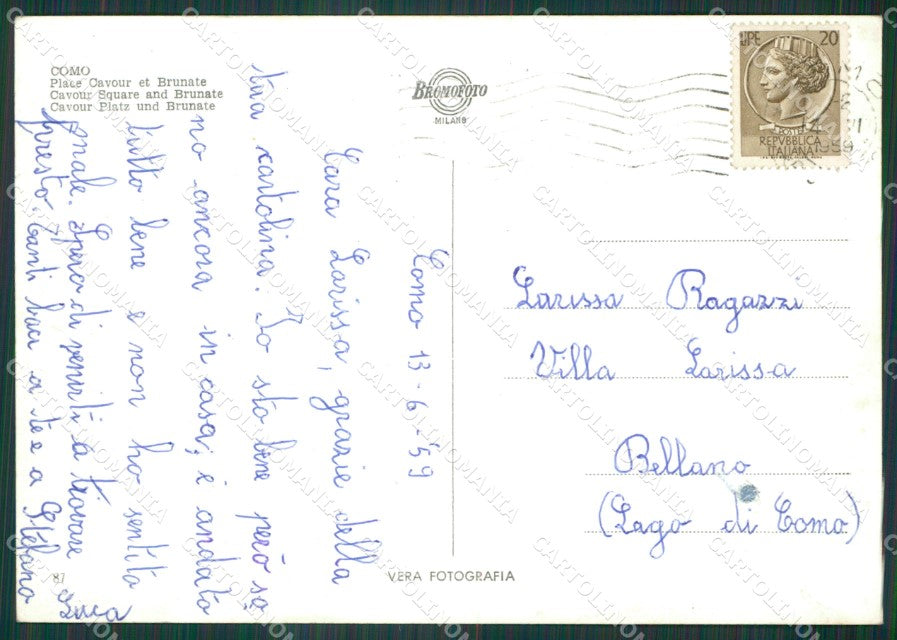 COMO
Place Cavour et Brunate
Cavour Square and Brunate
Cavour Platz und Brunate
BROMOFOTO
MILANO
LIRE 20
POSTE
REPVBBLICA
ITALIANA
1959
Como 13-6-'59
Cara Larissa, grazie della
tua cartolina. Io sto bene però so
no ancora in casa; è andato
tutto bene e non ho sentito
male. Spero di venirti a trovare
presto. Tanti baci a te e a Stefano
Luca
Larissa Ragazzi
Villa Larissa
Bellano
(Lago di Como)
87
VERA FOTOGRAFIA
CARTOLINOMANIA